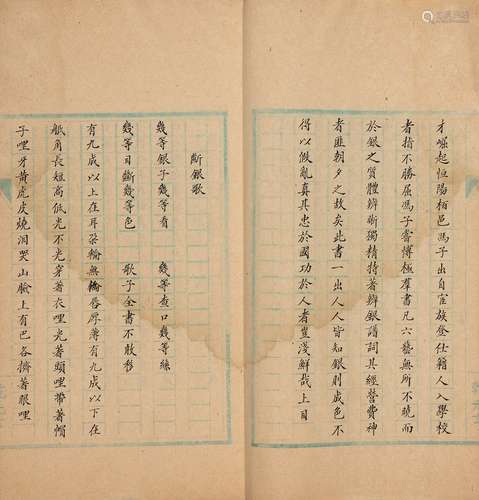 才崛起恒陽栢邑馮子出自宦族僉仕籍人入學校
者指不勝屈馮子⿱博極羣書凡六藝無所不曉而
於銀之質體辨晰獨精持著辨銀譜詞其經營費神
者匪朝夕之故矣此書一出人人皆知銀則成色不
得以假亂真其忠於國功於人者豈淺鮮哉上目
斷銀歌
幾等銀子幾等看 幾等查口幾等絲
幾等目斷幾等色 歌子全書不敢移
有九成以上在耳朶輪無橋唇厚薄有九成以下在
觝角長短高低光不光穿著衣哩光著頭哩帶著帽
子哩牙黄虎皮燒泪哭山臉上有巴各擠著眼哩